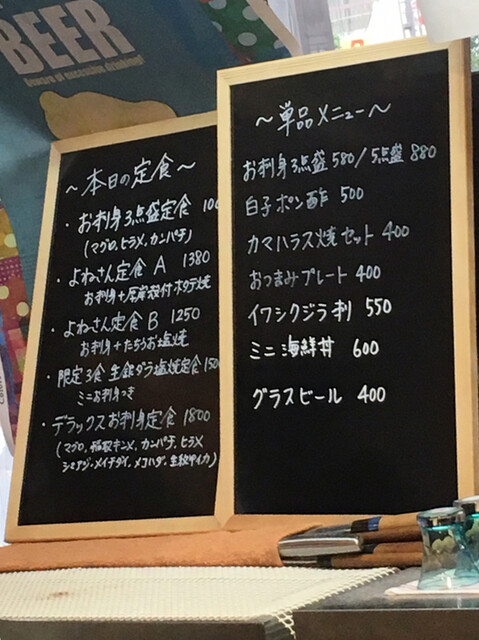 BEER
Beware of excessive drinking!
～本日の定食～
・お刺身3点盛定食 100
(マグロ、ヒラメ、カンパチ)
・よねさん定食 A 1380
お刺身+厚岸殻付ホタテ焼
・よねさん定食 B 1250
お刺身+たちうお塩焼
・限定3食 生銀ダラ塩焼定食 1500
ミニお刺身つき
・デラックスお刺身定食 1800
(マグロ、稲取キンメ、カンパチ、ヒラメ
シマアジ、メイチダイ、メコハダ、生
～単品メニュー～
お刺身3点盛 580/5点盛 880
白子ポン酢 500
カマハラス焼セット 400
おつまみプレート 400
イワシクジラ刺 550
ミニ海鮮丼 600
グラスビール 400